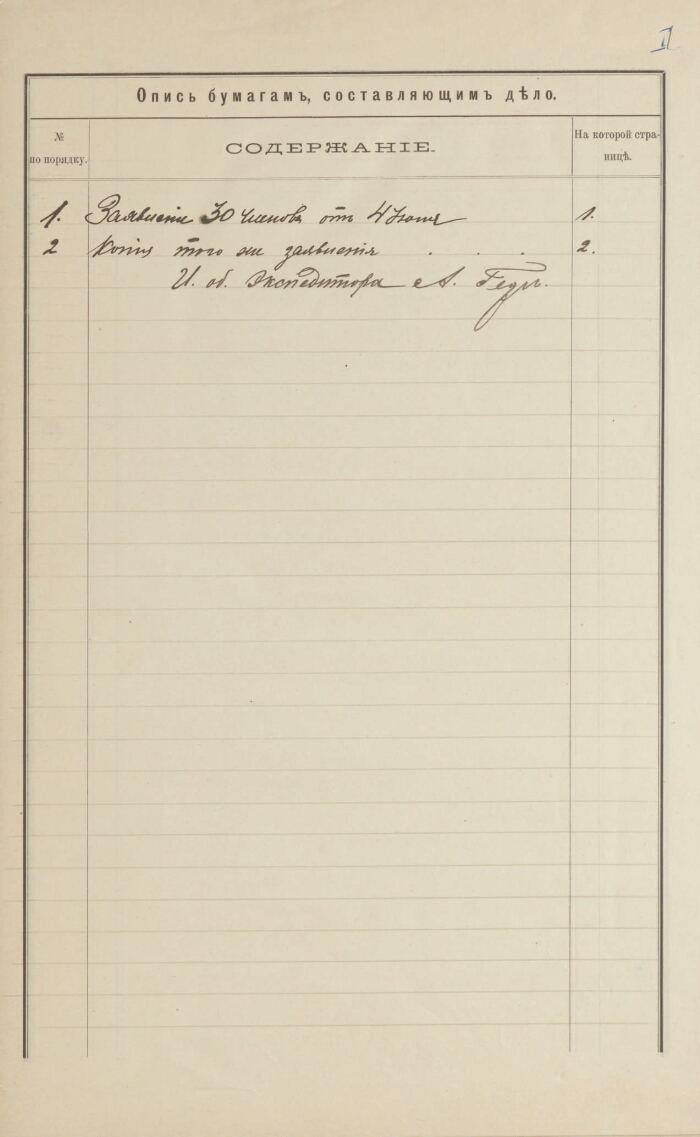 I
Опись бумагамъ, составляющимъ дѣло.
№ по порядку.
СОДЕРЖАНІЕ.
На которой стра-
ницѣ.
1. Заявленіе 30 членовъ отъ 4 Іюня 1.
2 Копія того же заявленія . . . 2.
И. об. Экспедитора А.